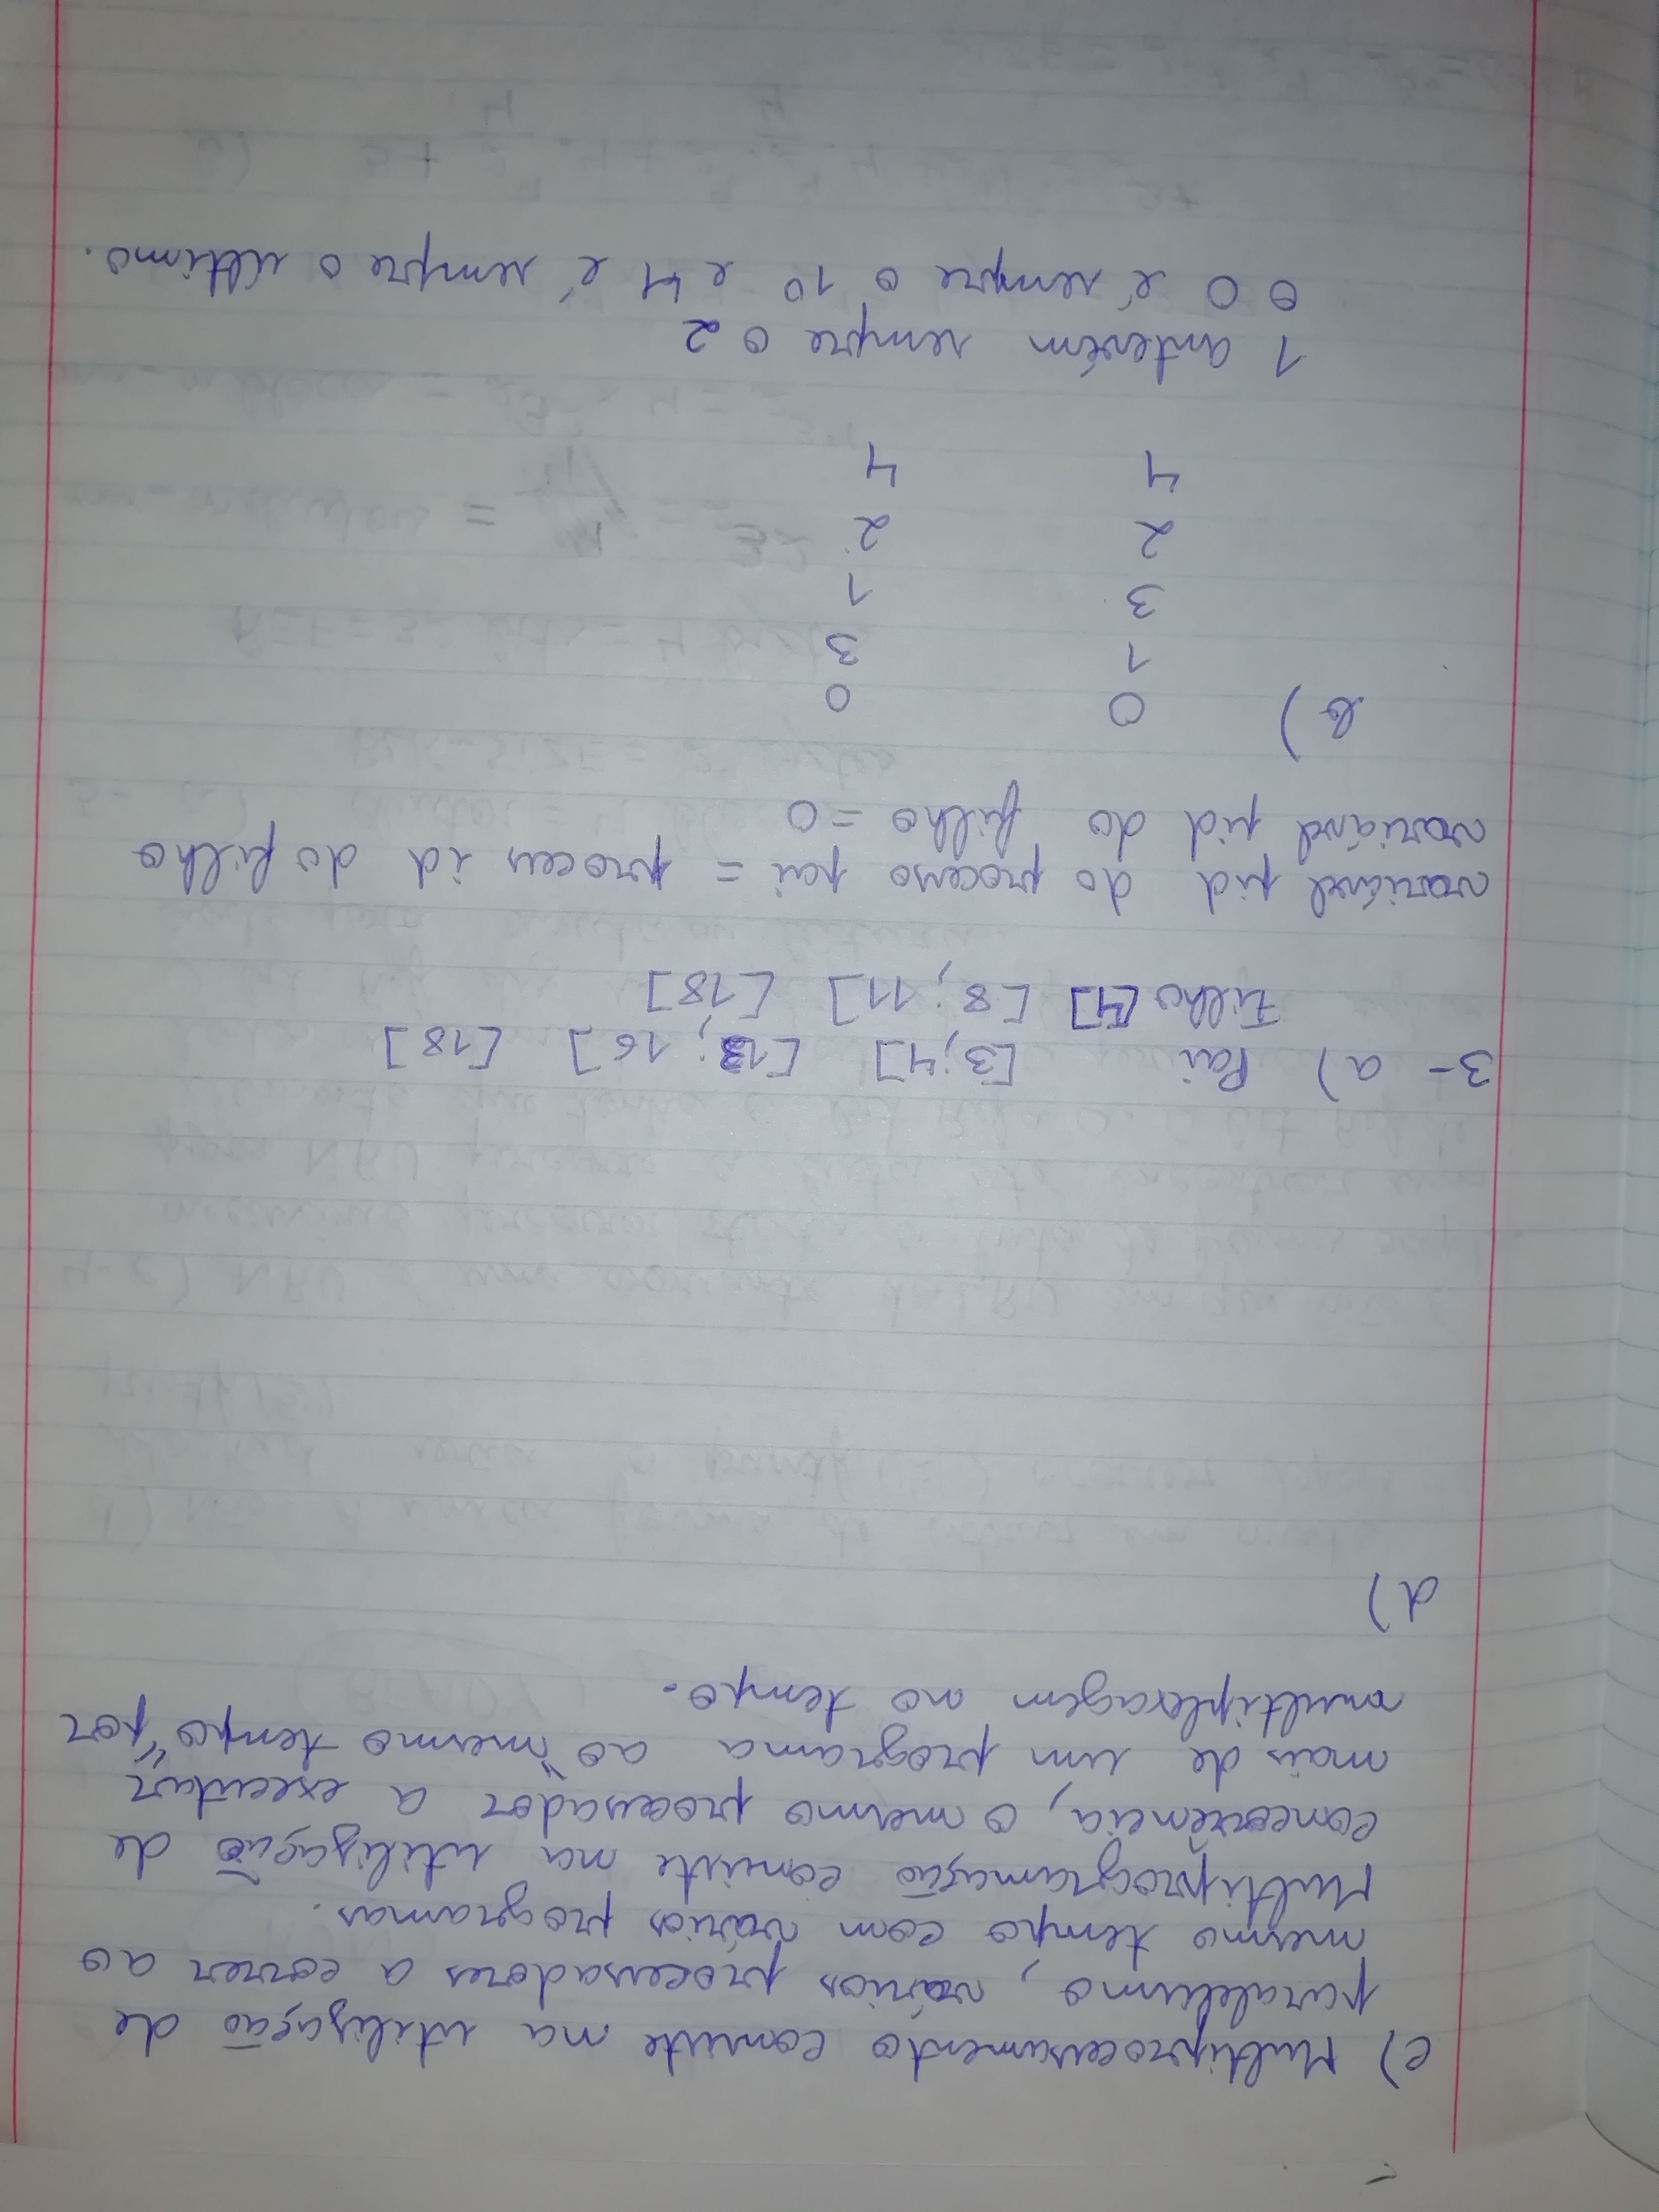 c) Multiprocessamento consiste na utilização de
paralelismo, vários processadores a correr ao
mesmo tempo com vários programas.
Multiprogramação consiste na utilização de
concorrência, o mesmo processador a executar
mais de um programa ao "mesmo tempo" por
multiplexagem no tempo.
d)
3- a) Pai [3;4] [13; 16] [18]
Filho [4] [8; 11] [18]
variável pid do processo pai = process id do filho
variável pid do filho = 0
b) 0 0
1 3
3 1
2 2
4 4
1 antevém sempre o 2
O 0 é sempre o 1º e 4 é sempre o último.